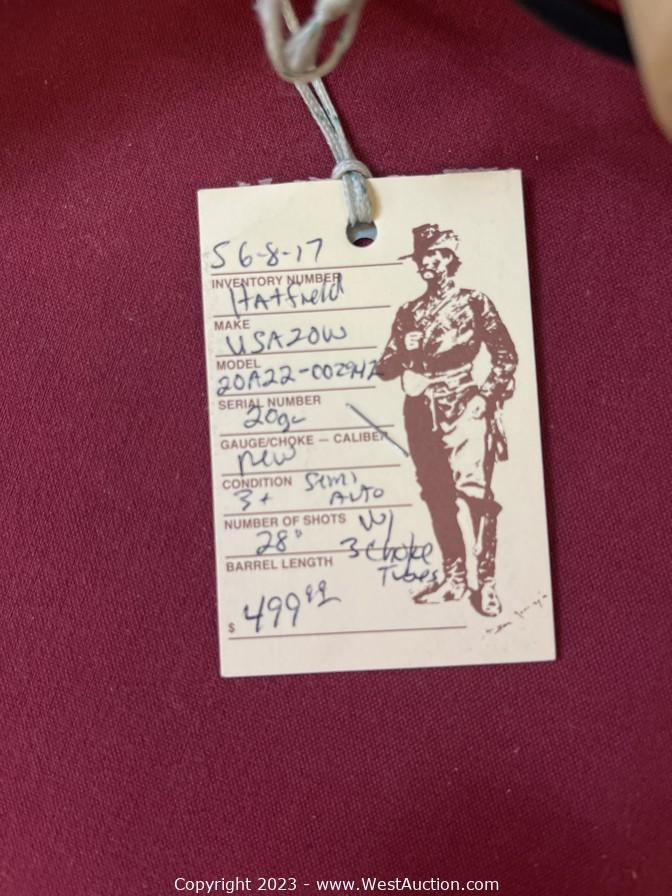 56-8-17
INVENTORY NUMBER
Hatfield
MAKE
USA20W
MODEL
20A22-002942
SERIAL NUMBER
20ga
GAUGE/CHOKE — CALIBER
new
CONDITION Semi
3+ Auto
NUMBER OF SHOTS W/
28" 3 Choke
BARREL LENGTH Tubes
$ 499.99
Copyright 2023 - www.WestAuction.com